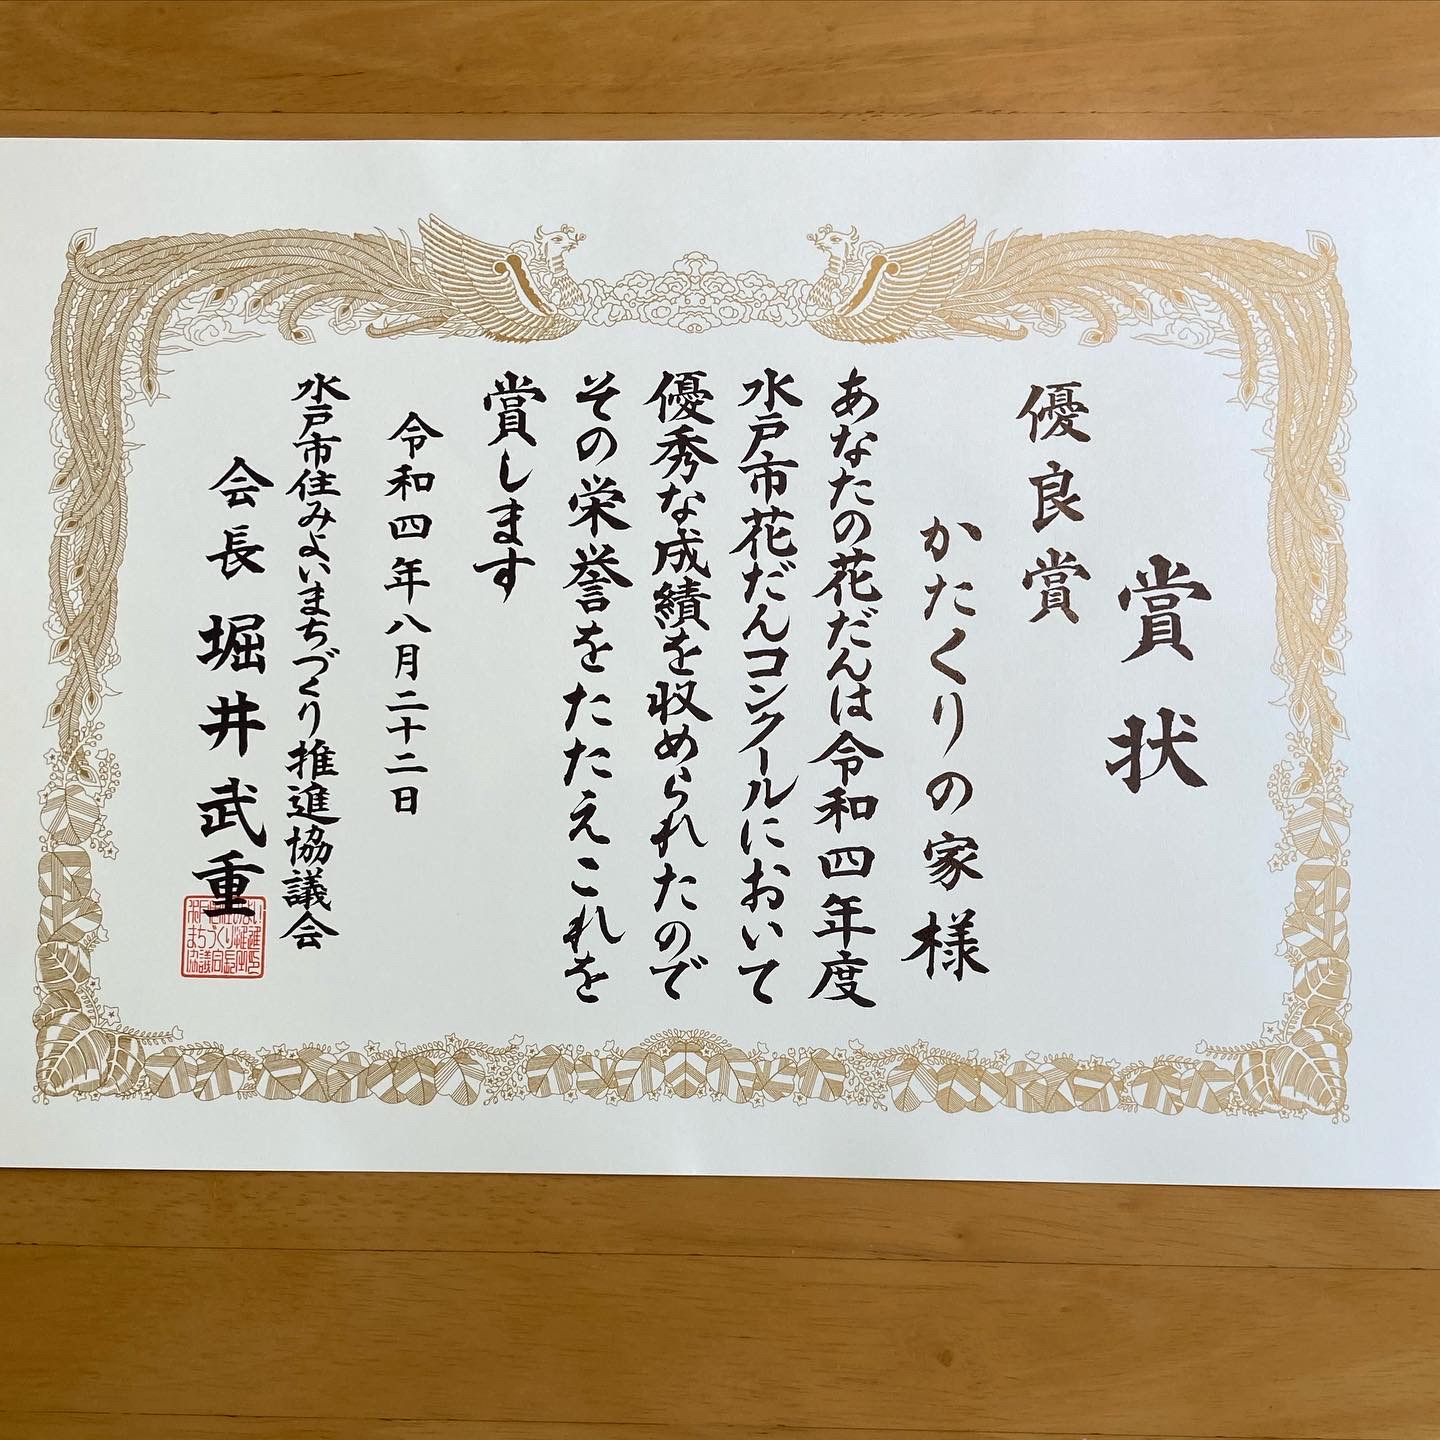 賞状
優良賞
かたくりの家様
あなたの花だんは令和四年度
水戸市花だんコンクールにおいて
優秀な成績を収められたので
その栄誉をたたえこれを
賞します
令和四年八月二十二日
水戸市住みよいまちづくり推進協議会
会長 堀井武重